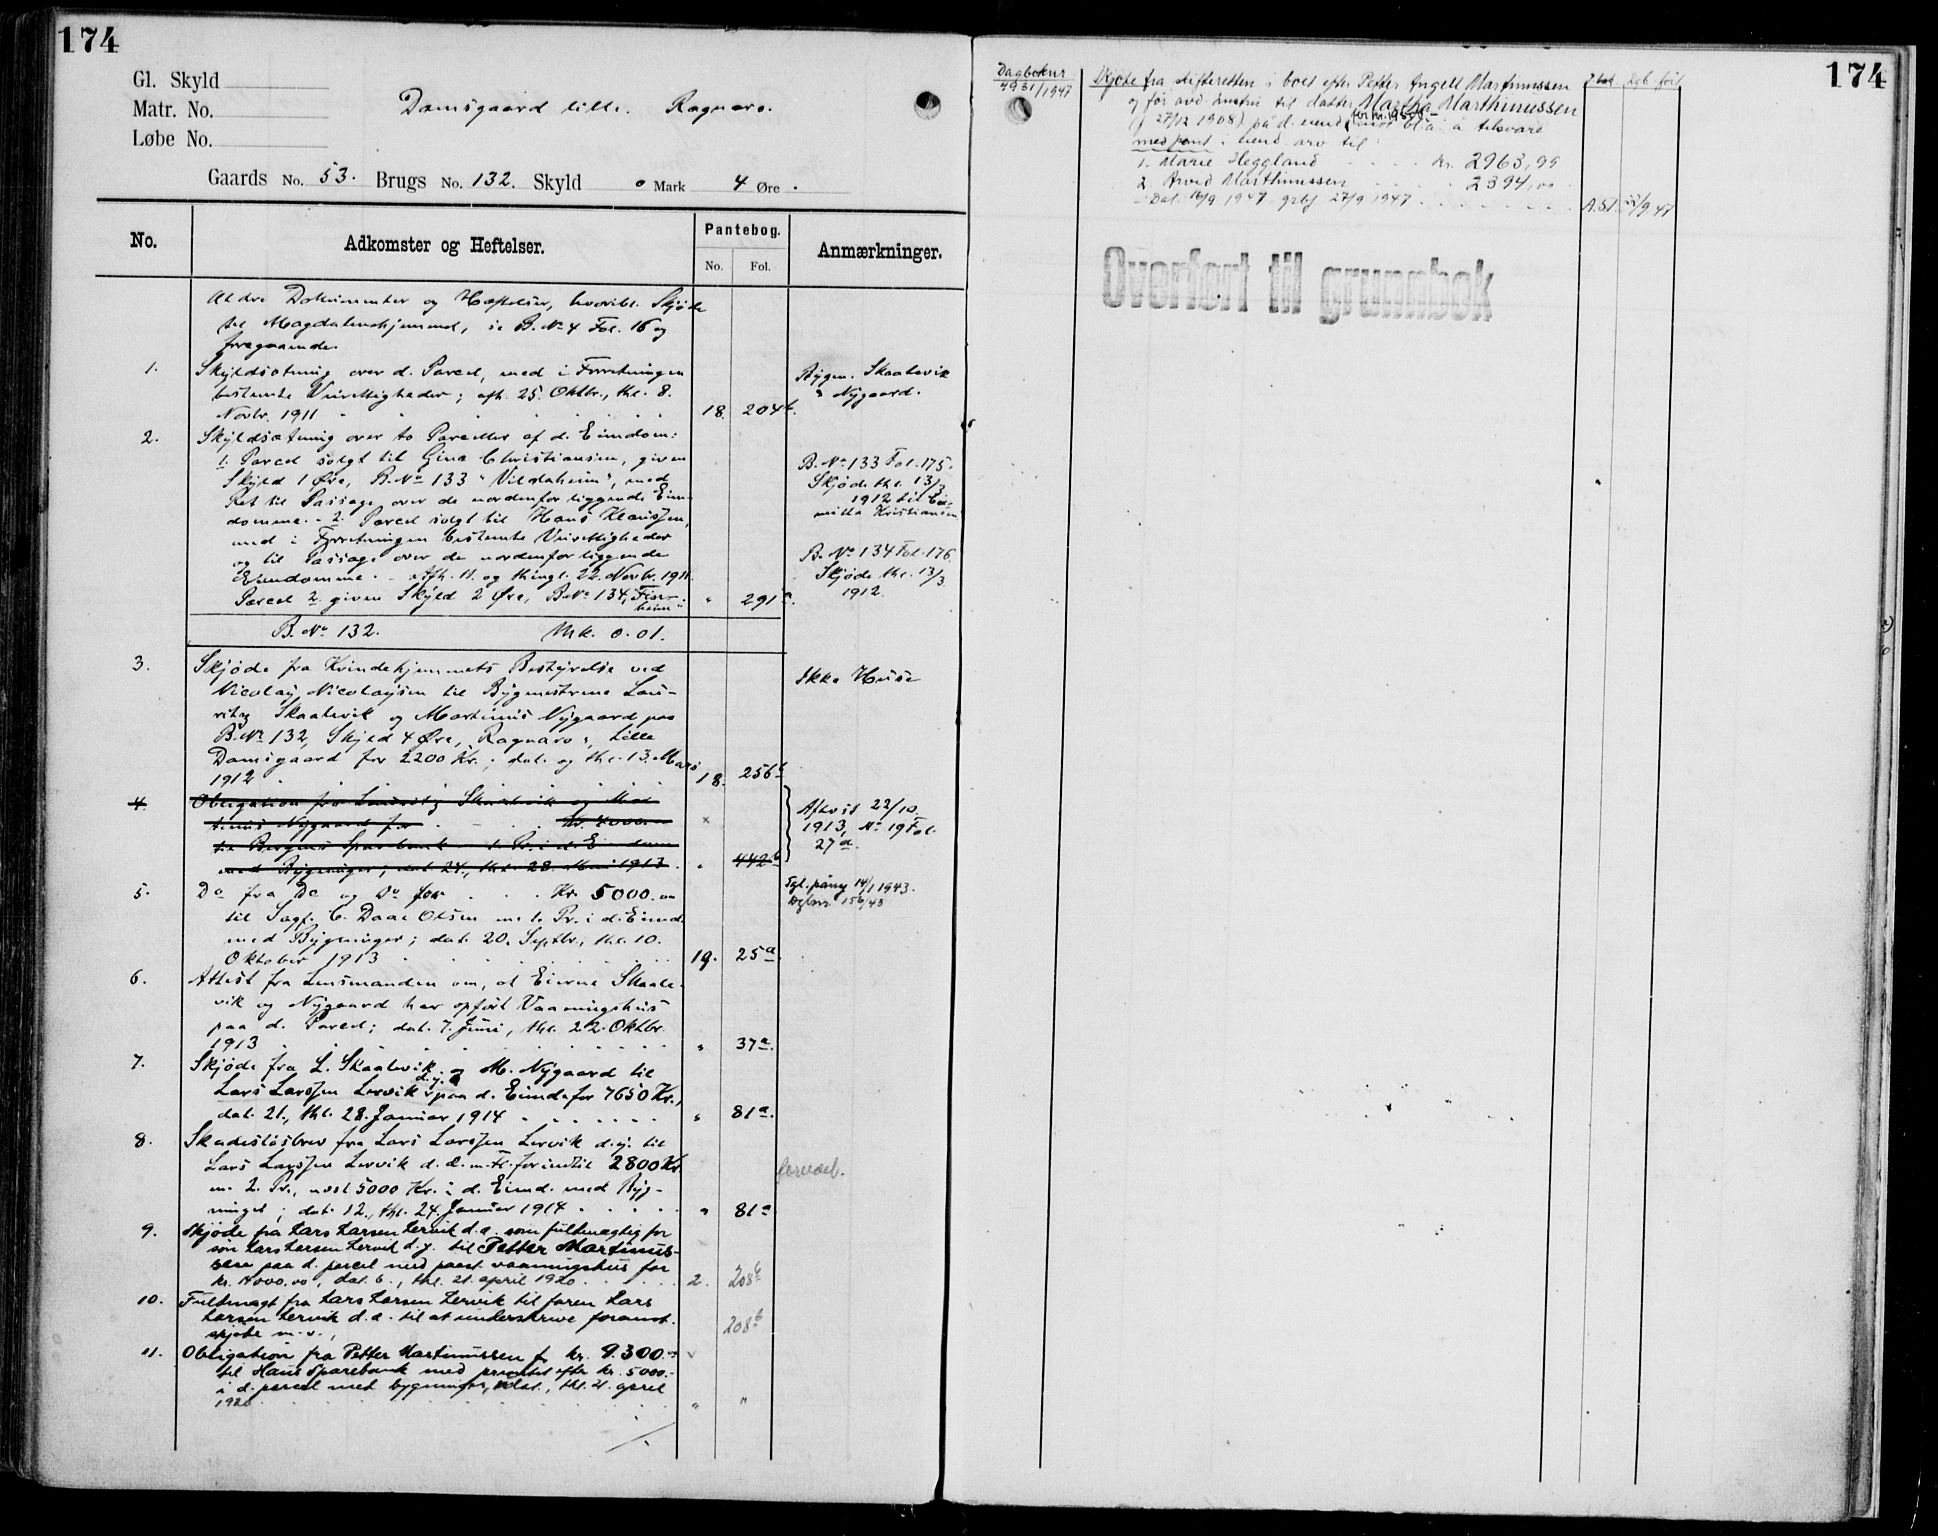 174
Gl. Skyld
Matr. No.
Løbe No.
Damsgaard lille. Ragnaro.
Gaards No. 53. Brugs No. 132. Skyld 0 Mark 4 Øre.
No.
Adkomster og Heftelser.
Pantebog.
No. Fol.
Anmærkninger.
Ældre Dokumenter og Hæftelser, hvoribl. Skjøde
til Magdalenehjemmet, se B. No 4 Fol. 16 og
foregaaende.
1. Skyldsætning over d. Parcel, med i Forretningen
bestemte Veirettigheder; afh. 25. Oktbr., thl. 8.
Novbr. 1911 18. 204b.
Bygm. Skaalevik
& Nygaard.
2. Skyldsætning over to Parceller af d. Eiendom:
1. Parcel solgt til Gina Christiansen, given
Skyld 1 Øre, B. No 133 "Vildaheim", med
Ret til Passage over de nordenfor liggende Eien-
domme. - 2. Parcel solgt til Hans Klaussen,
med i Forretningen bestemte Veirettigheder
og til Passage over de nordenfor liggende
Eiendomme. - Afh. 11. og thingl. 22. Novbr. 1911.
Parcel 2 given Skyld 2 Øre, B. No 134,
heim" " 291a.
B. No 133 Fol. 175.
Skjøde thl. 13/3
1912 til
Kristiansen
B. No 134 Fol. 176
Skjøde thl. 13/3
1912.
B. No 132. Mk. 0.01.
3. Skjøde fra Kvindehjemmets Bestyrelse ved
Nicolay Nicolaysen til Bygmestrene Lau-
ritz Skaalevik og Martinus Nygaard paa
B. No 132, Skyld 4 Øre, "Ragnaro", Lille
Damsgaard for 2200 Kr.; dat. og thl. 13. Mars
1912 18. 256b
Ikke Huse
4. Obligation fra Lauritz Skaalevik og Mar-
tinus Nygaard for Kr.
til Bergens Sparebank 1. Pr. i d. Eiendom
med Bygninger; dat. 24., thl. 28. Mai 1913. " 442b
Aflyst 22/10
1913, No 19 Fol.
27a.
5. Do fra Do og Do for Kr. 5000.00
til Sagf. C. Daae Olsen m. 1. Pr. i d. Eiend.
med Bygninger; dat. 20. Septbr., thl. 10.
Oktober 1913 19. 25a.
Tgl. påny 14/1 1943.
Dgbnr. 156/43
6. Attest fra Lensmanden om, at Eierne Skaale-
vik og Nygaard har opført Vaaningshus
paa d. Parcel; dat. 7. Juni, thl. 22. Oktbr.
1913 " 37a.
7. Skjøde fra L. Skaalevik og M. Nygaard til
Lars Larssen Lervik d.y. paa d. Eiend. for 7650 Kr.,
dat. 21., thl. 28. Januar 1914 " 81a.
8. Skadesløsbrev fra Lars Larssen Lervik d.y. til
Lars Larssen Lervik d.æ. m. fl. for indtil 2800 Kr.
m. 2. Pr., næst 5000 Kr. i d. Eiend. med Byg-
ninger; dat. 12., thl. 24. Januar 1914 " 81a
foreldet.
9. Skjøde fra Lars Larsen Lervik d.æ. som fuldmægtig for
søn Lars Larsen Lervik d.y. til Petter Martinus-
sen paa d. parcel med paast. vaaningshus for
kr. 14000.00, dat. 6., thl. 21. april 1920 2. 208b
10. Fuldmagt fra Lars Larsen Lervik til faren Lars
Larsen Lervik d.æ. til at underskrive foranst.
skjøte m.v., 208b
11. Obligation fra Petter Martinussen f. kr. 9.300.00
til Haus Sparebank med prioritet efter kr. 5000.-
i d. parcel med bygninger, dat., thl. 21. april
1920 " "
174
Dagboknr
7931/1947
Skjøte fra skifteretten i boet efter Petter Angell Marthinussen
og før avd. hustru til datter Martha Marthinussen
(f. 27/12 1908) på d. eiend. for kr. 19500.- mot bl.a. å tilsvare
med pant i eiend. arv til:
1. Marie Heggland kr. 2963,99
2. Arvid Marthinussen 2394,00
Dat. 16/9 1947, grbf 27/9 1947 A.S.T. 27/9 47
Overført til grunnbok